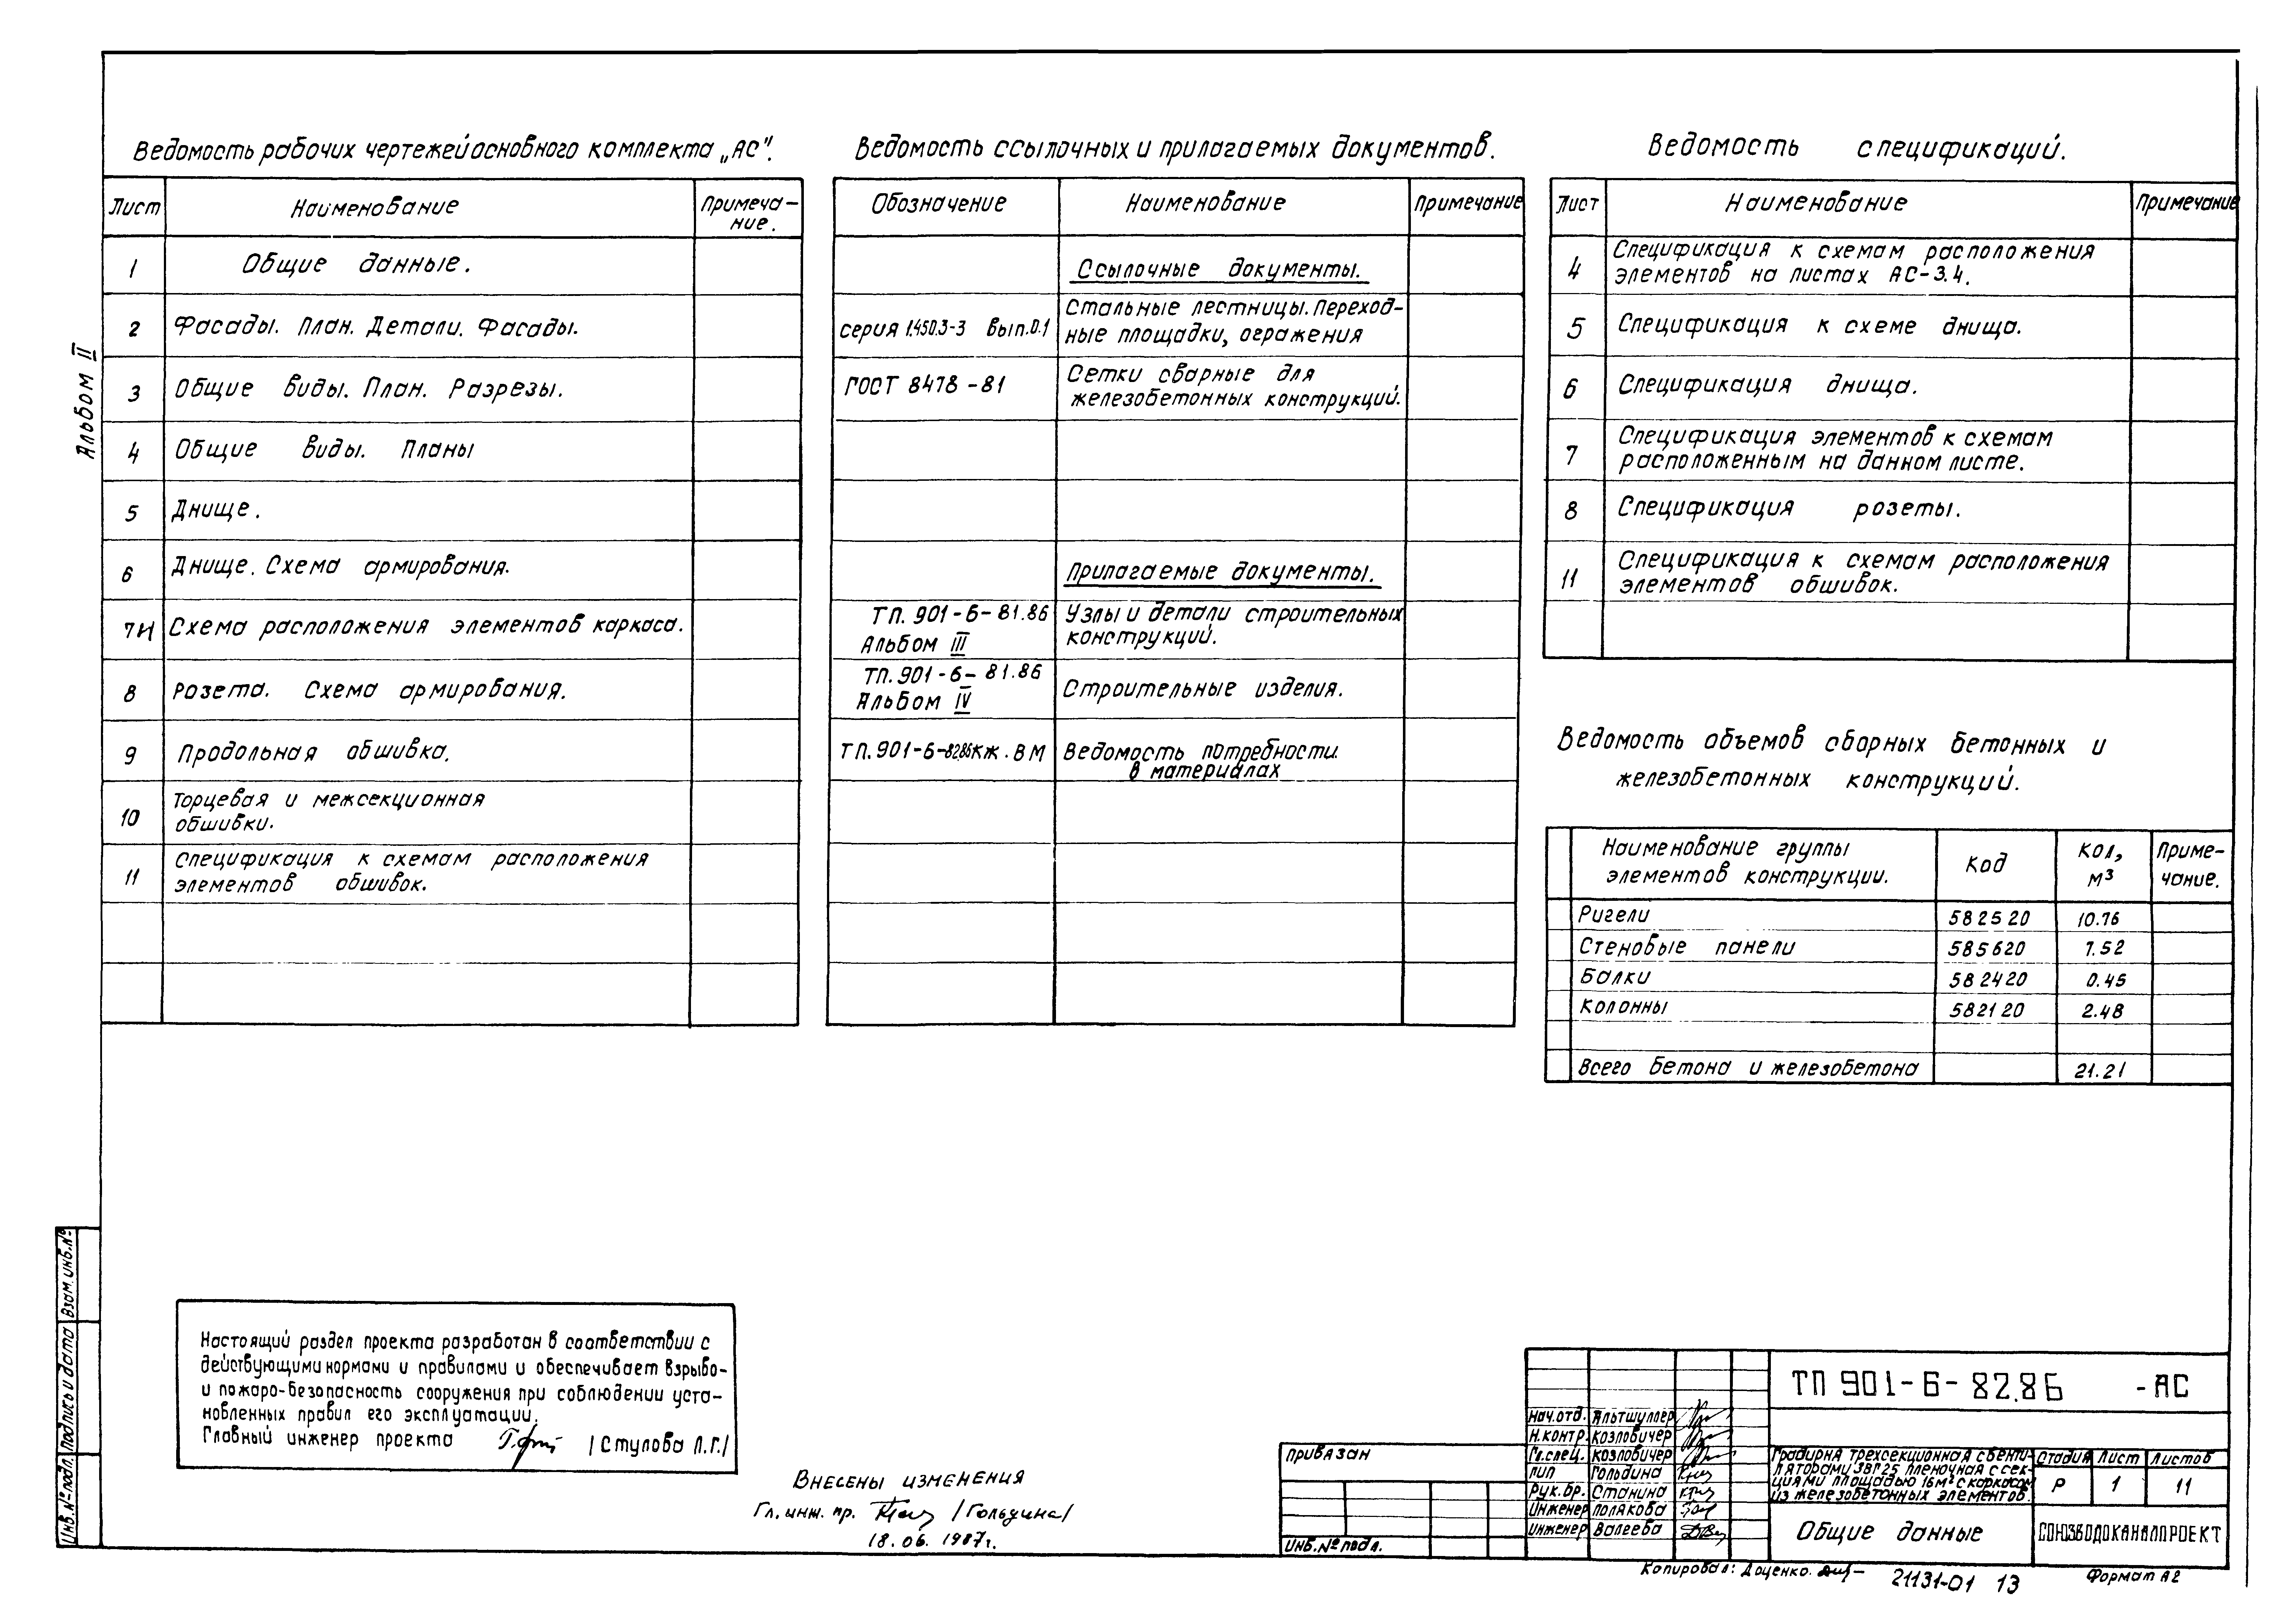 Альбом II
Ведомость рабочих чертежей основного комплекта „АС".
Лист Наименование Примеча-
ние.
1 Общие данные.
2 Фасады. План. Детали. Фасады.
3 Общие виды. План. Разрезы.
4 Общие виды. Планы
5 Днище.
6 Днище. Схема армирования.
7И Схема расположения элементов каркаса.
8 Розета. Схема армирования.
9 Продольная обшивка.
10 Торцевая и межсекционная
обшивки.
11 Спецификация к схемам расположения
элементов обшивок.
Ведомость ссылочных и прилагаемых документов.
Обозначение Наименование Примечание
Ссылочные документы.
серия 1.450.3-3 вып.0.1 Стальные лестницы. Переход-
ные площадки, огражения
ГОСТ 8478-81 Сетки сварные для
железобетонных конструкций.
Прилагаемые документы.
ТП. 901-6-81.86 Узлы и детали строительных
Альбом III конструкций.
ТП. 901-6-81.86
Альбом IV Строительные изделия.
ТП. 901-6-82.86 КЖ.ВМ Ведомость потребности
в материалах
Ведомость спецификаций.
Лист Наименование Примечание
4 Спецификация к схемам расположения
элементов на листах АС-3.4.
5 Спецификация к схеме днища.
6 Спецификация днища.
7 Спецификация элементов к схемам
расположенным на данном листе.
8 Спецификация розеты.
11 Спецификация к схемам расположения
элементов обшивок.
Ведомость объемов сборных бетонных и
железобетонных конструкций.
Наименование группы
элементов конструкции. Код Кол, м³ Приме-
чание.
Ригели 582520 10.76
Стеновые панели 585620 7.52
Балки 582420 0.45
Колонны 582120 2.48
Всего бетона и железобетона 21.21
Настоящий раздел проекта разработан в соответствии с
действующими нормами и правилами и обеспечивает взрыво-
и пожаро-безопасность сооружения при соблюдении уста-
новленных правил его эксплуатации.
Главный инженер проекта /Стулова Л.Г./
Внесены изменения
Гл. инж. пр. /Гольдина/
18.06. 1987г.
Инв.№ подл. Подпись и дата Взам. инв.№
Привязан
Инв.№ подл.
Нач.отд. Альтшуллер
Н.контр. Козлович​ер
Гл.спец. Козловичер
ГИП Гольдина
Рук.бр. Станина
Инженер Полякова
Инженер Валеева
ТП 901-6-82.86 -АС
Градирня трехсекционная с венти-
ляторами 3ВГ25 пленочная с сек-
циями площадью 16м² с каркасом
из железобетонных элементов.
Стадия Лист Листов
Р 1 11
Общие данные
СОЮЗВОДОКАНАЛПРОЕКТ
Копировал: Доценко. 21131-01 13 Формат А2